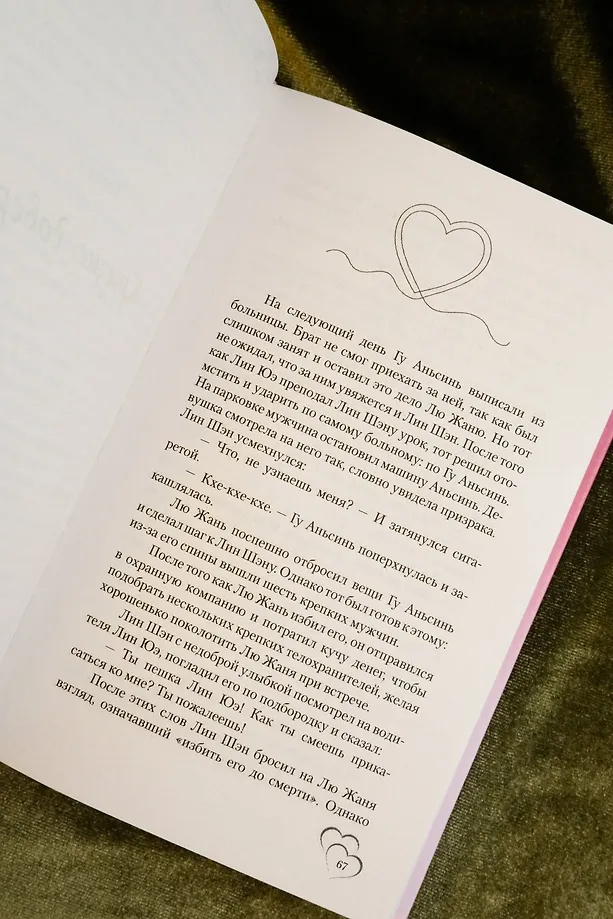 На следующий день Гу Аньсинь выписали из
больницы. Брат не смог приехать за ней, так как был
слишком занят и оставил это дело Лю Жаню. Но тот
не ожидал, что за ним увяжется и Лин Шэн. После того
как Лин Юэ преподал Лин Шэну урок, тот решил ото-
мстить и ударить по самому больному: по Гу Аньсинь.
На парковке мужчина остановил машину Аньсинь. Де-
вушка смотрела на него так, словно увидела призрака.
Лин Шэн усмехнулся:
— Что, не узнаешь меня? — И затянулся сига-
ретой.
— Кхе-кхе-кхе. — Гу Аньсинь поперхнулась и за-
кашлялась.
Лю Жань поспешно отбросил вещи Гу Аньсинь
и сделал шаг к Лин Шэну. Однако тот был готов к этому:
из-за его спины вышли шесть крепких мужчин.
После того как Лю Жань избил его, он отправился
в охранную компанию и потратил кучу денег, чтобы
подобрать нескольких крепких телохранителей, желая
хорошенько поколотить Лю Жаня при встрече.
Лин Шэн с недоброй улыбкой посмотрел на води-
теля Лин Юэ, погладил его по подбородку и сказал:
— Ты пешка Лин Юэ! Как ты смеешь прика-
саться ко мне? Ты пожалеешь!
После этих слов Лин Шэн бросил на Лю Жаня
взгляд, означавший «избить его до смерти». Однако
67